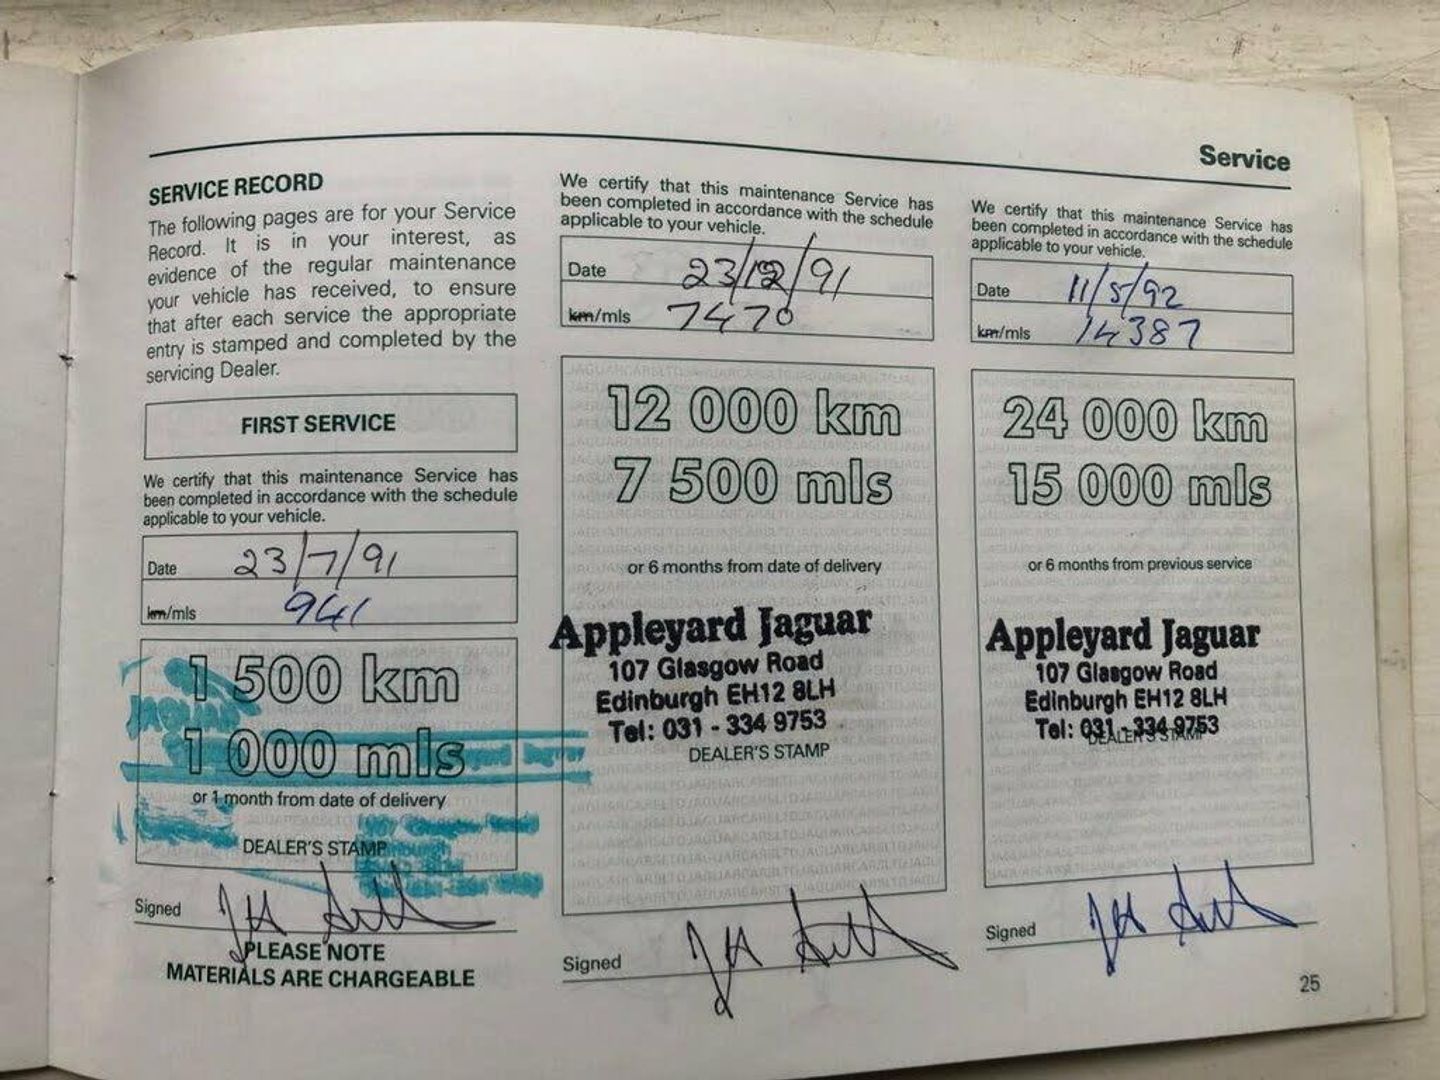 Service
SERVICE RECORD
The following pages are for your Service
Record. It is in your interest, as
evidence of the regular maintenance
your vehicle has received, to ensure
that after each service the appropriate
entry is stamped and completed by the
servicing Dealer.
FIRST SERVICE
We certify that this maintenance Service has
been completed in accordance with the schedule
applicable to your vehicle.
Date 23/7/91
km/mls 941
1 500 km
1 000 mls
or 1 month from date of delivery
DEALER'S STAMP
Signed
PLEASE NOTE
MATERIALS ARE CHARGEABLE
We certify that this maintenance Service has
been completed in accordance with the schedule
applicable to your vehicle.
Date 23/12/91
km/mls 7470
12 000 km
7 500 mls
or 6 months from date of delivery
Appleyard Jaguar
107 Glasgow Road
Edinburgh EH12 8LH
Tel: 031 - 334 9753
DEALER'S STAMP
Signed
We certify that this maintenance Service has
been completed in accordance with the schedule
applicable to your vehicle.
Date 11/5/92
km/mls 14387
24 000 km
15 000 mls
or 6 months from previous service
Appleyard Jaguar
107 Glasgow Road
Edinburgh EH12 8LH
Tel: 031 - 334 9753
DEALER'S STAMP
Signed
25